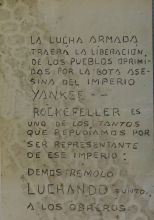 LA LUCHA ARMADA
TRAERA LA LIBERACION,
DE LOS PUEBLOS OPRIMI-
DOS, POR LA BOTA ASE-
SINA DEL IMPERIO
YANKEE --
ROCKEFELLER ES
UNO DE LOS TANTOS
QUE REPUDIAMOS POR
SER REPRESENTANTE
DE ESE IMPERIO:
DEMOSTREMOLO
LUCHANDO JUNTO
A LOS OBREROS